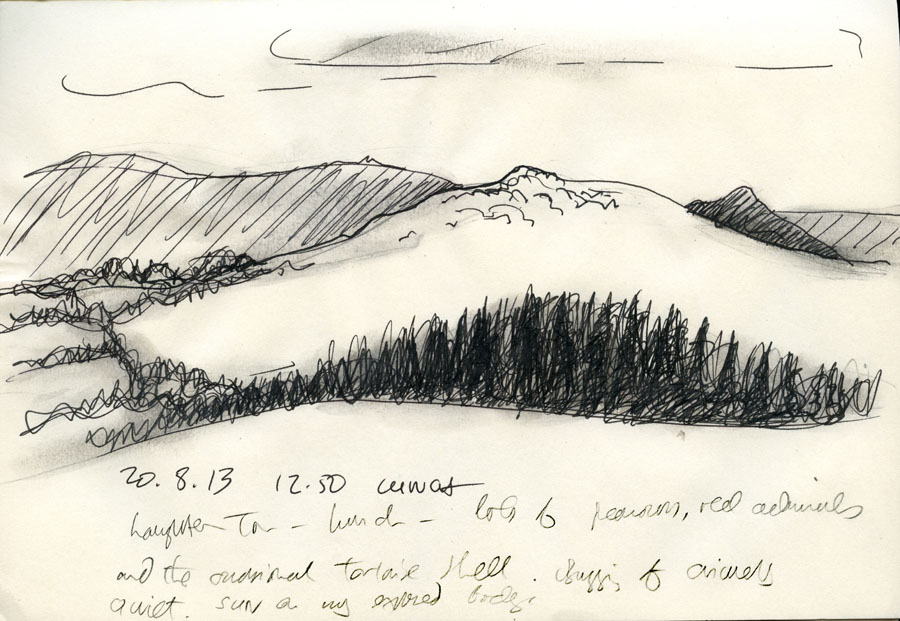 20.8.13 12.50
Laughter Tor - lunch - lots of peacocks, red admirals
and the occasional tortoise shell. of
quiet. sun on my exposed